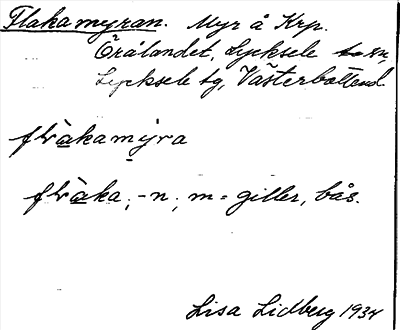 Flakamyran. Myr å Krp.
Örålandet, Lycksele
Lycksele tg, Västerbottend
flakamyra
flaka, -n, m = giller, bås.
Lisa Lidberg 1934